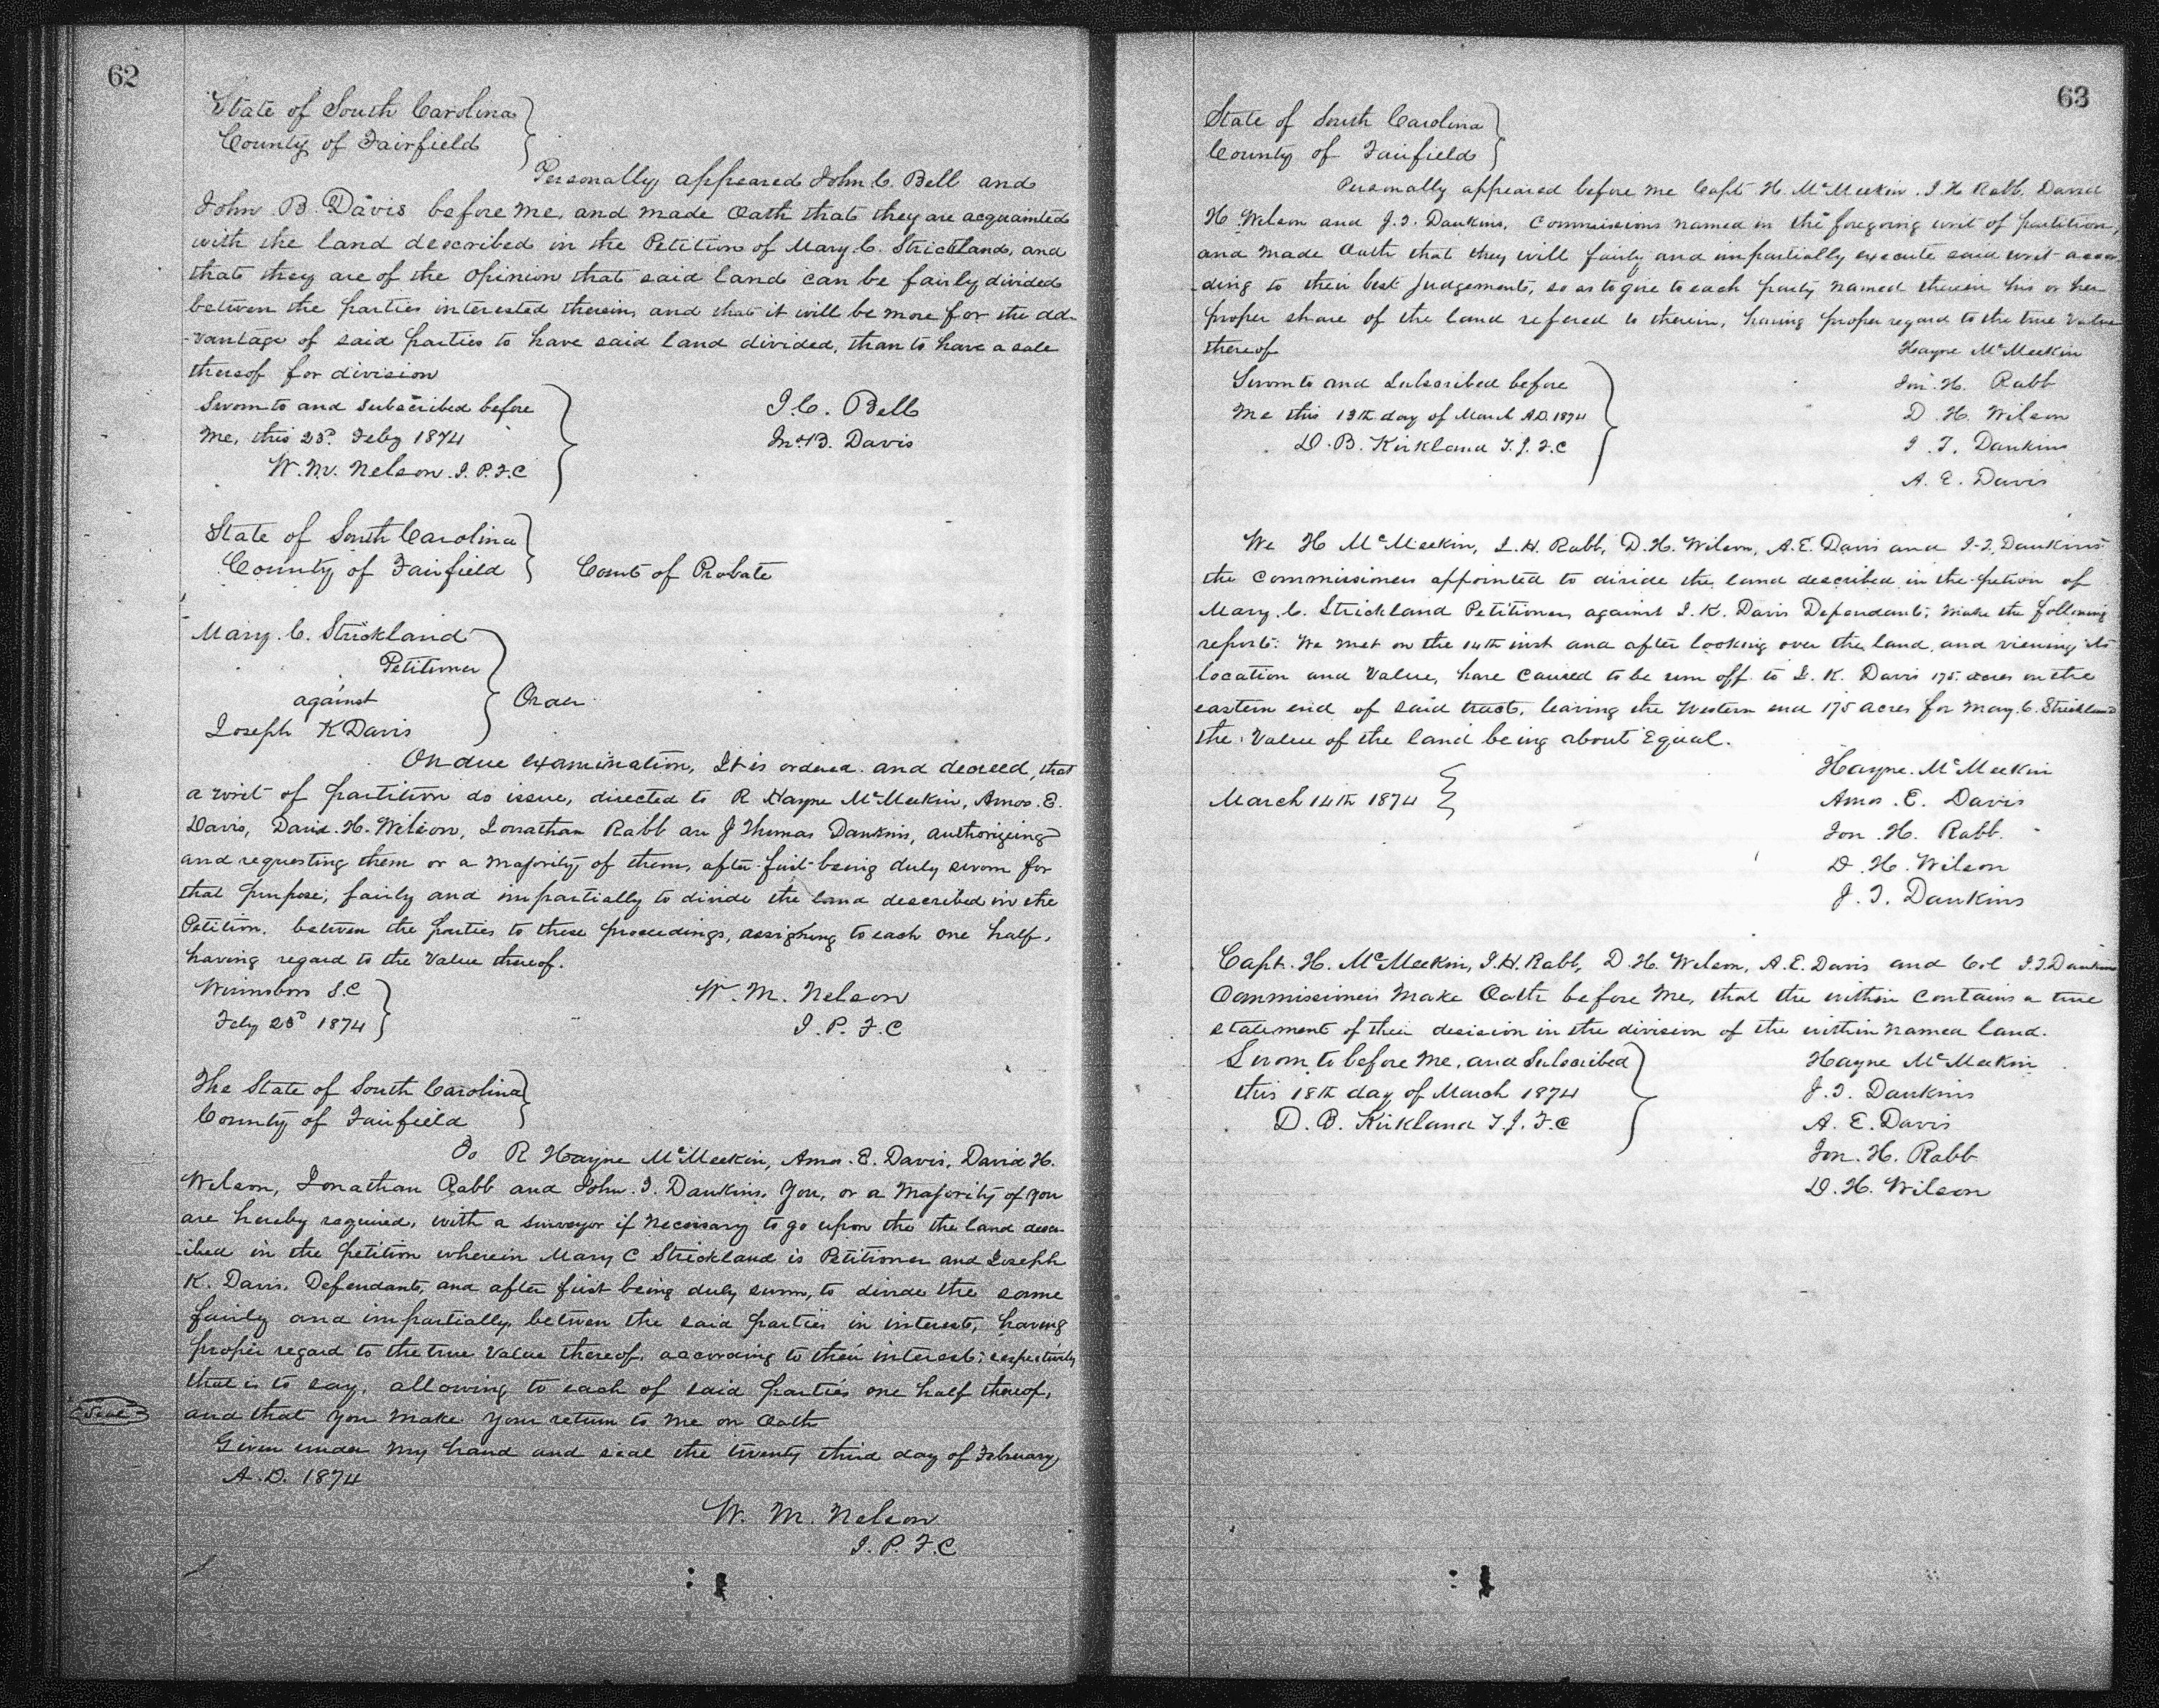 62
State of South Carolina
County of Fairfield
Personally appeared John C. Bell and
John B. Davis before me, and made Oath that they are acquainted
with the land described in the Petition of Mary. C. Strickland, and
that they are of the Opinion that said land can be fairly divided
between the parties interested therein, and that it will be more for the ad-
-vantage of said parties to have said land divided, than to have a sale
thereof for division
Sworn to and subscribed before
me, this 23d Feby 1874
W. M. Nelson J. P. F. C
J. C. Bell
Jno B. Davis
State of South Carolina
County of Fairfield
Court of Probate
Mary. C. Strickland
Petitioner
against
Joseph K Davis
Order
On due examination, It is ordered and decreed, that
a writ of partition do issue, directed to R Hayne McMeekin, Amos. E.
Davis, David. H. Wilson, Jonathan Rabb an J Thomas Dawkins, authorizeing
and requesting them or a majority of them, after first being duly sworn for
that purpose, fairly and impartially to divide the land described in the
Petition. between the parties to these proceedings, assigning to each one half,
having regard to the Value thereof.
Winnsboro S. C
Feby 23d 1874
W. M. Nelson
J. P. F. C
The State of South Carolina
County of Fairfield
To R Hayne McMeekin, Amos. E. Davis, David H.
Wilson, Jonathan Rabb and John. T. Dawkins. You, or a Majority of you
are hereby required, with a surveyor if necessary to go upon the the land descr-
-ibed in the petition wherein Mary C Strickland is Petitioner and Joseph
K. Davis, Defendant, and after first being duly sworn, to divide the same
fairly and impartially between the said parties in interest, having
proper regard to the true Value thereof, according to their interest; respectively
that is to say, allowing to each of said parties one half thereof,
and that you make your return to me on Oath
Seal
Given under my hand and seal the twenty third day of February
A. D. 1874
W. M. Nelson
J. P. F. C
63
State of South Carolina
County of Fairfield
Personally appeared before me Capt H. McMeekin. J H Rabb, David
H Wilson and J. T. Dawkins, Commissions named in the foregoing writ of partition,
and made Oath that they will fairly and impartially execute said writ accor
-ding to their best Judgements, so as to give to each party named therein his or her
proper share of the land refered to therein, having proper regard to the true Value
thereof
Sworn to and Subscribed before
Me this 13th day of March A.D. 1874
D. B. Kirkland T. J. F. C
Hayne McMeekin
Jon. H. Rabb
D. H. Wilson
J. T. Dawkins
A. E. Davis
We H McMeekin, J. H. Rabb, D. H. Wilson, A. E. Davis and J. T. Dawkins
the Commissioners appointed to divide the land described in the petion of
Mary. C. Strickland Petitioner, against J. K. Davis Defendant, make the following
report: We met on the 14th inst and after looking over the land, and viewing its
location and Value, have caused to be run off to J. K. Davis 175 acres on the
eastern end of said tract, leaving the Western end 175 acres for Mary. C. Strickland
the Value of the land being about Equal.
March 14th 1874
Hayne. McMeekin
Amos. E. Davis
Jon. H. Rabb.
D. H. Wilson
J. T. Dawkins
Capt. H. McMeekin, J. H. Rabb, D. H. Wilson, A. E. Davis and Col J. T. Dawkins
Commissioners make Oath before me, that the within Contains a true
statement of their decision in the division of the within named land.
Sworn to before me, and Subscribed
this 18th day of March 1874
D. B. Kirkland T. J. F. C
Hayne McMeekin
J. T. Dawkins
A. E. Davis
Jon. H. Rabb
D. H. Wilson